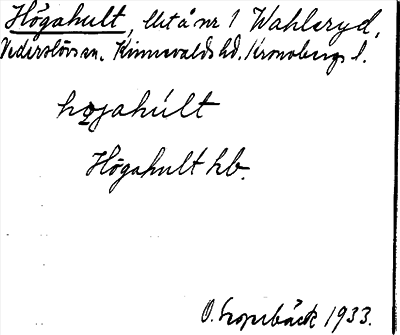 Högahult, Utå nr 1 Wahlsryd,
Vederslövs sn. Kinnevalds hd. Kronobergs l.
hǫgahúlt
Högahult hb.
O. 1933.